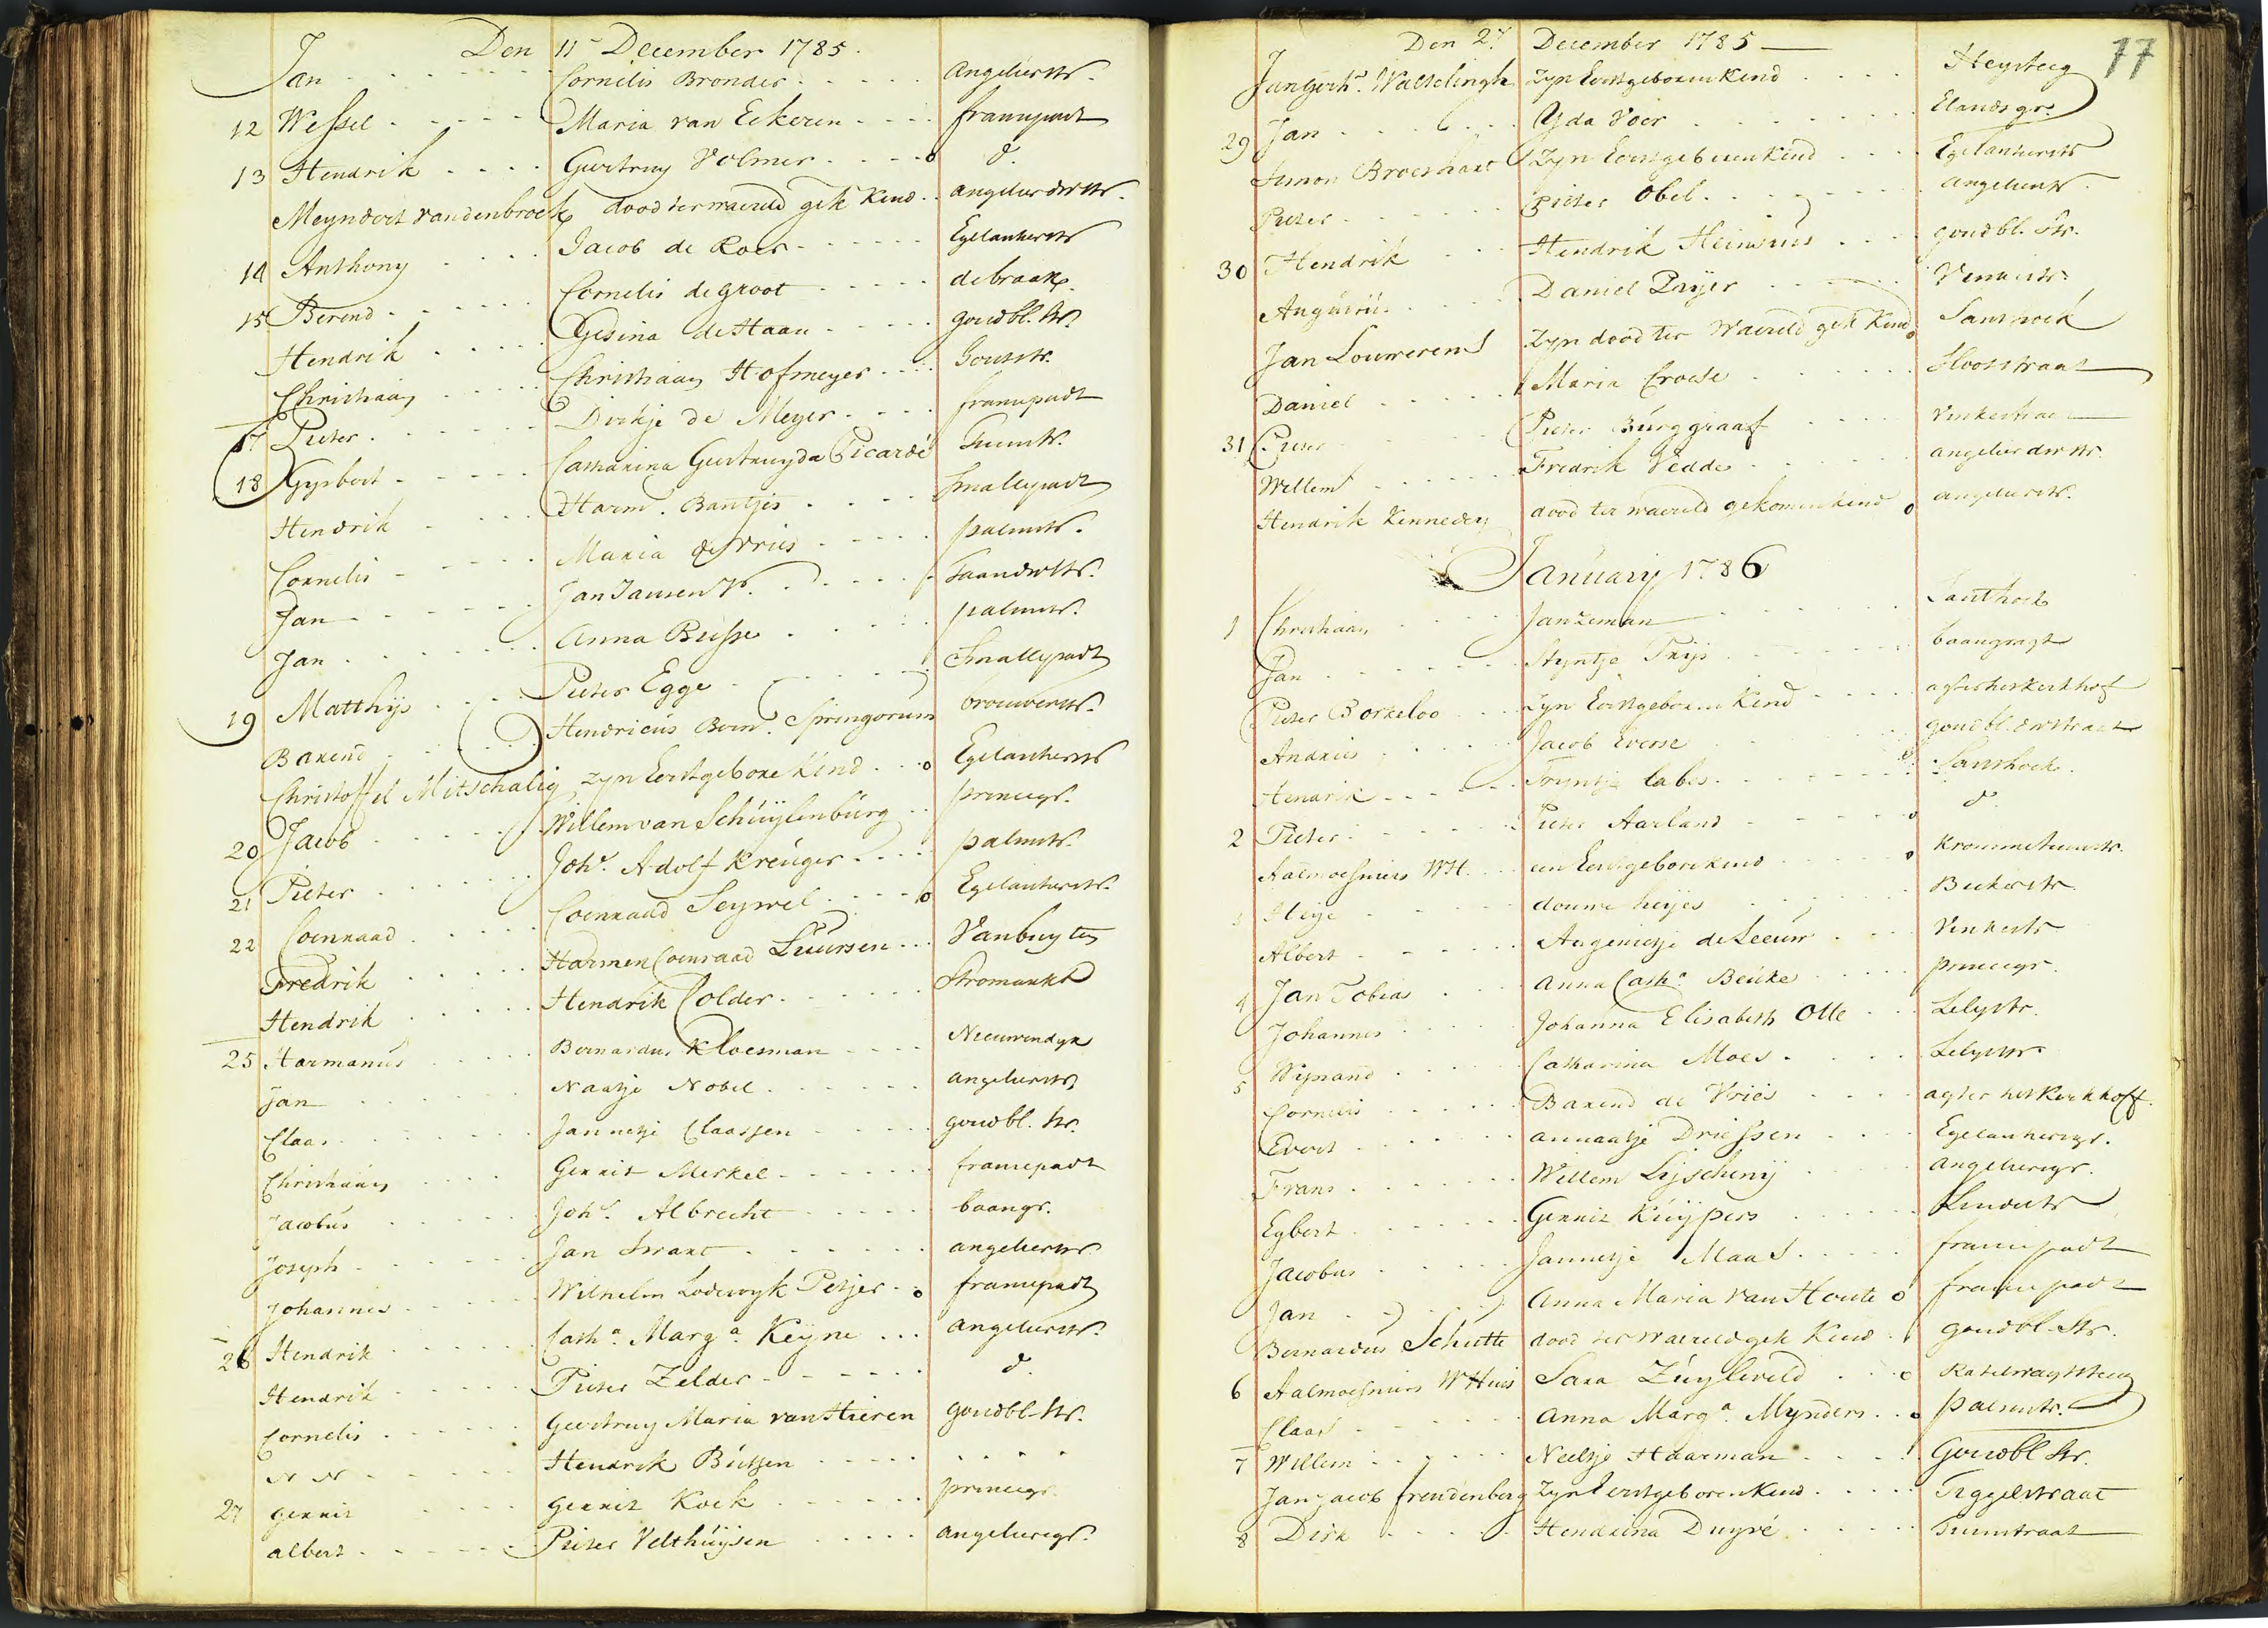 Den 11 December 1785.
Jan Cornelis Bronder angelierstr.
12 Wessel Maria van Eekeren franschepadt
13 Hendrik Geertruy Volmer do.
Meyndert van den broek dood ter waereld gek kend angelierdwstr.
14 Anthony Jacob de Roos Egelantierstr
15 Berend Cornelis de groot de braak
Hendrik Gesina de Haan goudbl. str.
Christiaan Christiaan Hofmeyer
17 Pieter Dirkje de Meyer franschepadt
18 Gysbert Catharina Geertruyda Picardé Tuinstr.
Hendrik Harm. Bantjes Smallepadt
Cornelis Maria de Vries palmstr.
Jan Jan Jansen
Jan Anna Busse palmstr.
19 Matthijs Pieter Egge Smallepadt
Barend Hendricus Springorum brouwerstr.
Christoffel Mitschalig zyn Eerstgebore kind Egelantierstr
20 Jacob Willem van Schuijlenburg princegr.
21 Pieter Johs. Adolf Kreuger palmstr.
22 Coenraad Coenraad Seywel Egelantierstr.
Fredrik Harmen Coenraad Luursen Van buyten
Hendrik Hendrik Colder Stromarkt
25 Harmanus Bernardus Kloesman Nieuwendyk
Jan Naatje Nobel angelierstr
Claas Jannetje Claassen goudbl. str.
Christiaan Gerrit Merkel franschepadt
Jacobus Johs. Albrecht baangr.
Joseph Jan Swart angelierstr
Johannes Wilhelm Lodewyk Petjer franschepadt
26 Hendrik Catha. Marga. Keyne angelierstr.
Hendrik Pieter Zelder do.
Cornelis Geertruy Maria van Hieren goudbl. str.
N N Hendrik Butjen
27 gerrit gerrit Kock princegr
albert Pieter Velthuijsen angeliergr.
77
Den 27 December 1785
Jan Gerht. Wasselingh zyn Eerstgeboren kend Heysteeg
29 Jan Yda Voer Elandsgr.
Simon Broeshart Zyn Eerstgeboren kend Egelantierstr
Pieter Pieter Obel angelierstr.
30 Hendrik Hendrik Heinsius goudbl. str.
Augustus Daniel Prijer Venkestr.
Jan Louwerens Zyn dood ter waereld gek kend Santhoek
Daniel Maria Croese Slootstraat
31 Pieter Pieter Burggraaf vinkestraat
Willem Fredrik Vedder angelier dwstr.
Hendrik Kennedey dood ter waereld gekomen kend angelierstr.
January 1786
1 Christiaan Jan Zeman Santhoek
Jan Styntje Thijs baangragt
Pieter Borkeloo Zyn Eerstgeboren Kend agter het kerkhof
Andries Jacob Everse goudbl. dwstraat
Hendrik Tryntje Labes Santhoek.
2 Pieter Pieter Aarland do.
Aalmoesniers WH. een Eerstgebore kend Krommetuinstr.
3 Heije douwe heijes Bekerstr
Albert Angenietje de Leeuw Venkestr
4 Jan Tobias Anna Catha. Beuke princegr.
Johannes Johanna Elisabeth Otte Lelystr.
5 Wijnand Catharina Moes Lelystr
Cornelis Barend de Vries agter het Kerkhoff.
Evert annaatje Driessen Egelantiergr.
Frans Willem Lyscheny angeliergr.
Egbert Gerrit Kuijpers Lindestr
Jacobus Jannetje Maas franschepadt
Jan Anna Maria van Houte franschepadt
Bernardus Schutte dood ter waereld gek Kend goudbl. str.
6 Aalmoesniers WHuis Sara Zuyleveld Ratelwagtsteeg
Claas Anna Marga. Mynders palmstr.
7 Willem Neeltje Haarman Goudbl str.
Jan Jacob freudenberg Zyn Eerstgeboren kend Tiggelstraat
8 Dirk Hendrina Duyvé tuinstraat